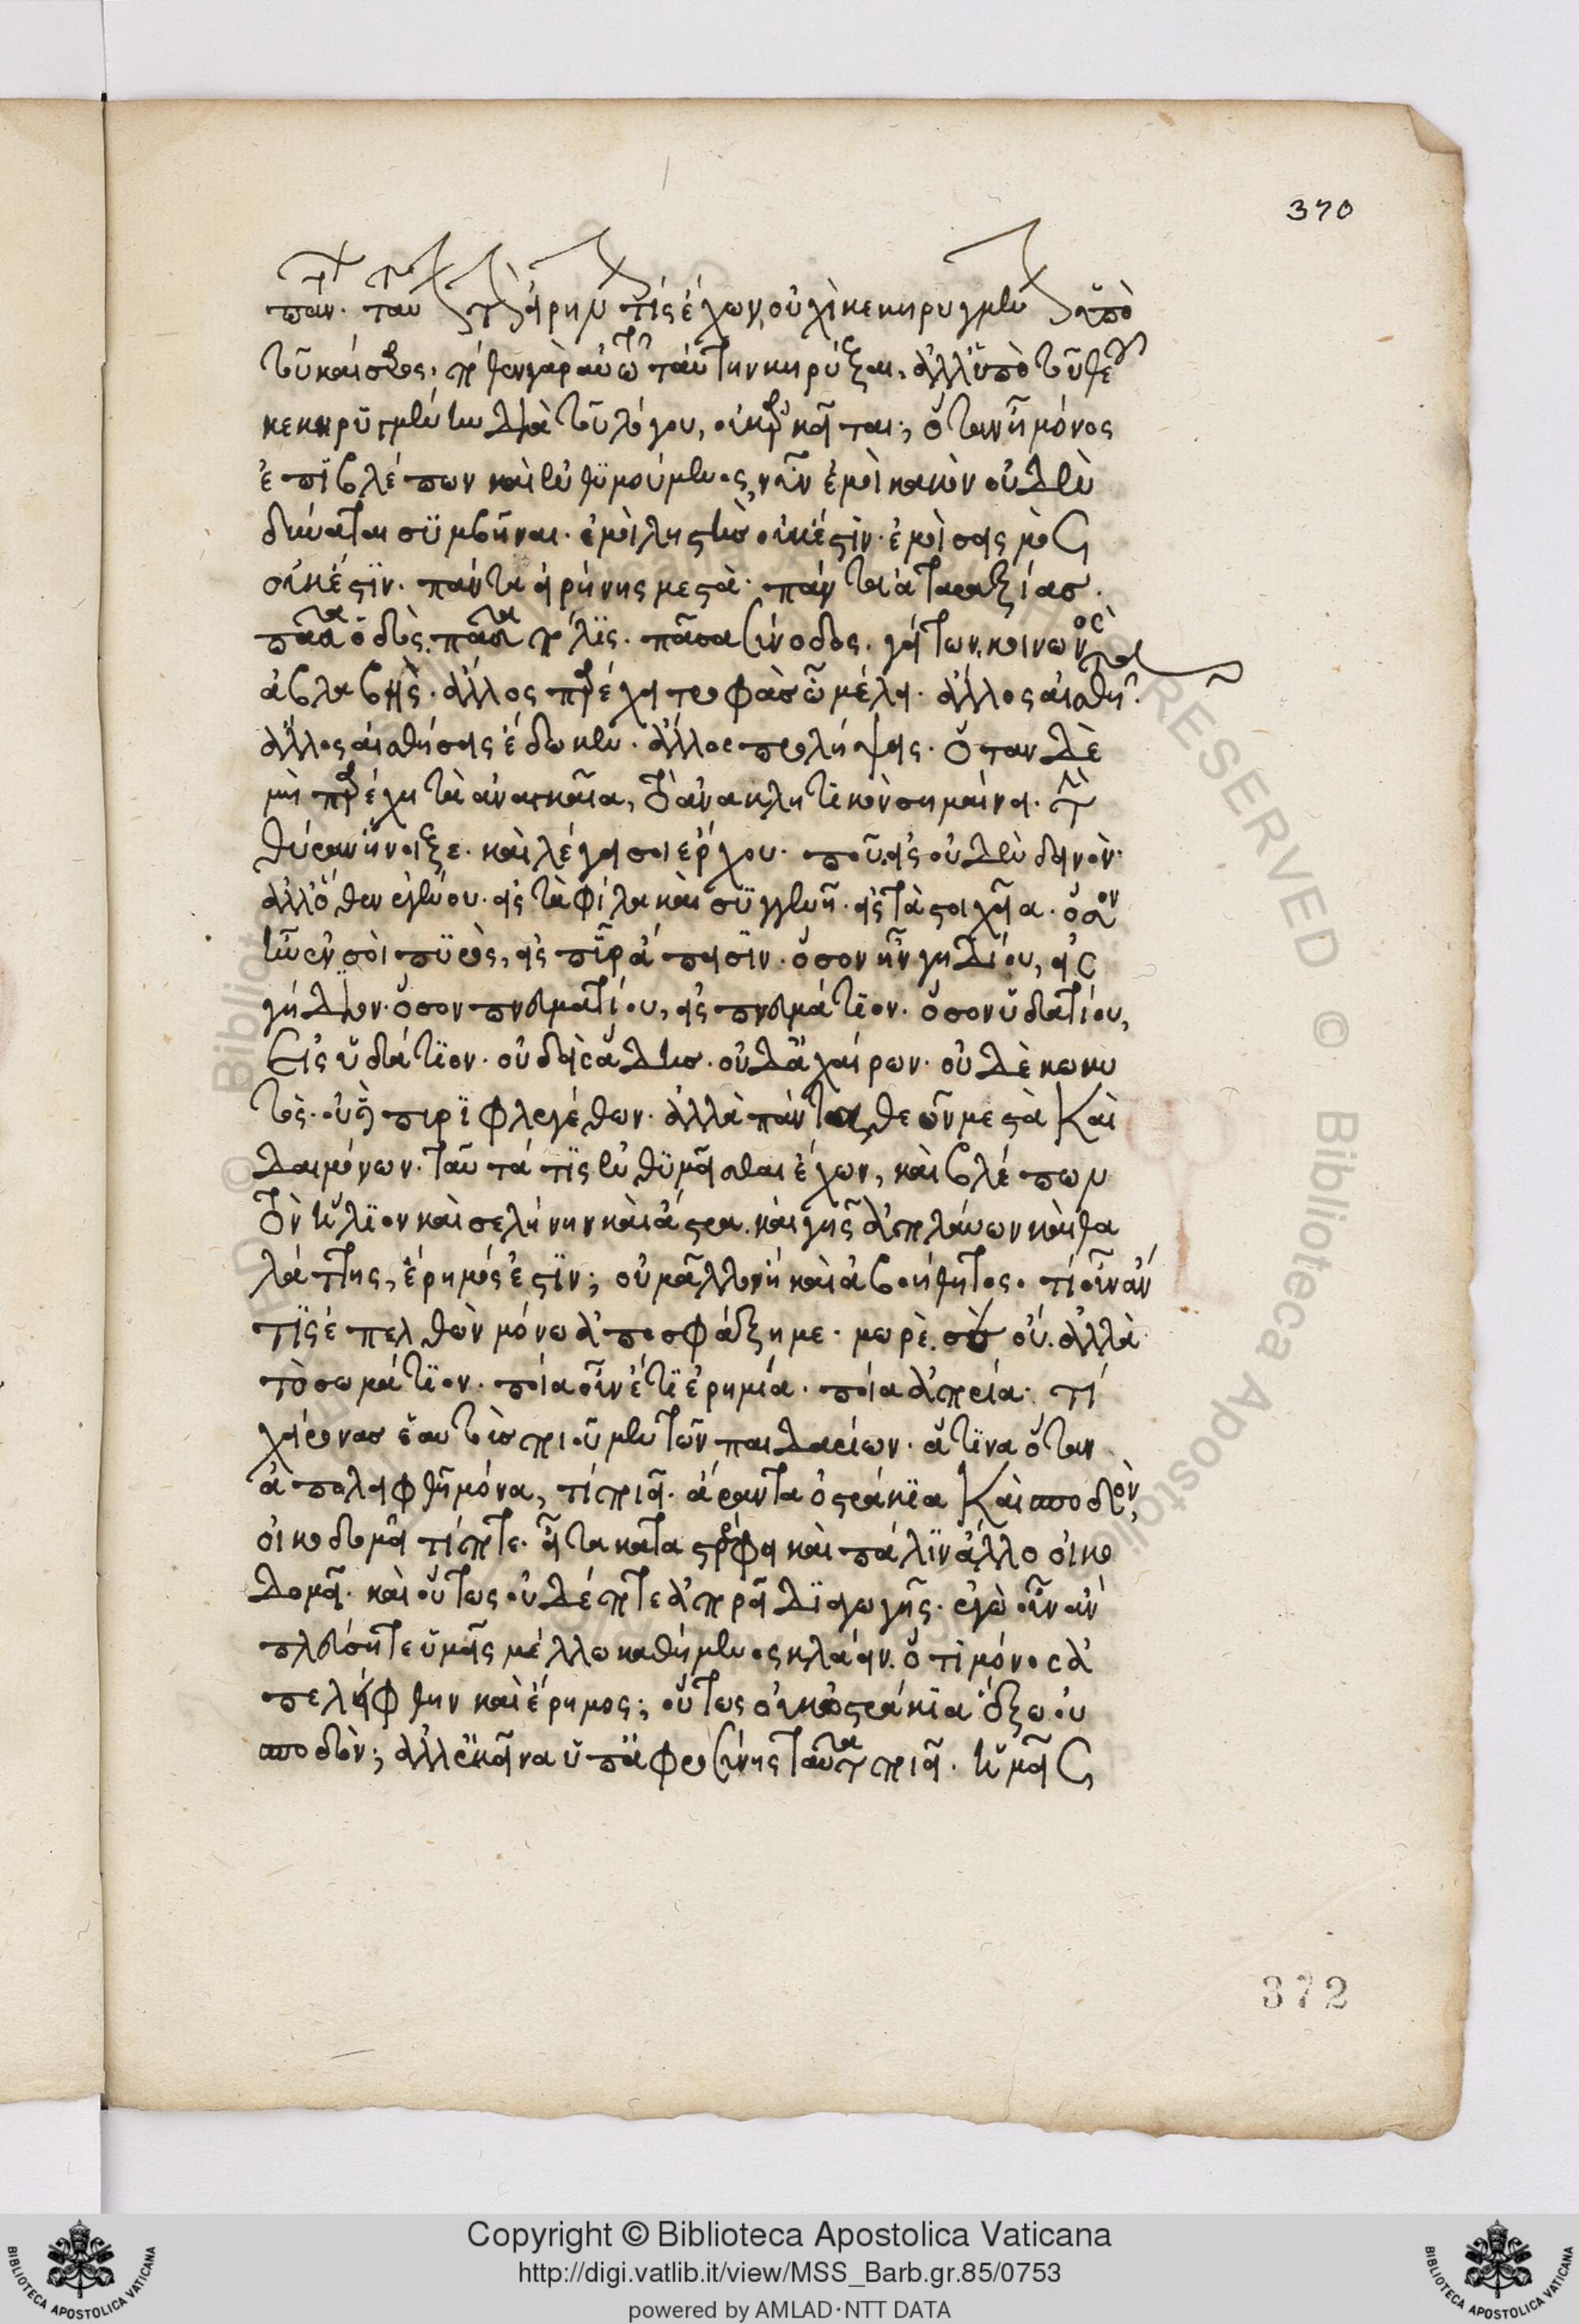 370
πάντων. ταύτην τὴν εἰρήνην τίς ἔχων, οὐχὶ κεκηρυγμένην ὑπὸ
τοῦ καίσαρος. πόθεν γὰρ αὐτῷ ταύτην κηρύξαι. ἀλλ' ὑπὸ τοῦ θεοῦ
κεκηρυγμένην διὰ τοῦ λόγου, οὐκ ἀρκεῖται; ὅταν ἦ μόνος
ἐπιβλέπων καὶ ἐνθυμούμενος, νῦν ἐμοὶ κακὸν οὐδὲν
δύναται συμβῆναι. ἐμοὶ ληστὴς οὐκ ἔστιν. ἐμοὶ σεισμὸς
οὐκ ἔστιν. πάντα εἰρήνης μεστὰ. πάντα ἀταραξίας.
πᾶσα ὁδὸς. πᾶσα πόλις. πᾶσα σύνοδος. γείτων, κοινωνὸς
ἀβλαβὴς. ἄλλος παρέχει τροφὰς ᾧ μέλει. ἄλλος ἐσθῆτα.
ἄλλος αἰσθήσεις ἔδωκεν. ἄλλος προλήψεις. ὅταν δὲ
μὴ παρέχῃ τὰ ἀναγκαῖα, τὸ ἀνακλητικὸν σημαίνει. τὴν
θύραν ἤνοιξε. καὶ λέγει σοι ἔρχου. ποῦ. εἰς οὐδὲν δεινὸν.
ἀλλ' ὅθεν ἐγένου. εἰς τὰ φίλα καὶ συγγενῆ. εἰς τὰ στοιχεῖα. ὅσον
ἦν ἐν σοὶ πυρὸς, εἰς πῦρ ἄπεισιν. ὅσον ἦν γηδίου, εἰς
γήδιον. ὅσον πνευματίου, εἰς πνευμάτιον. ὅσον ὑδατίου,
εἰς ὑδάτιον. οὐδεὶς ἅδης. οὐδ' ἀχαίρων. οὐδὲ κωκυ
τὸς. οὐδὲ πυριφλεγέθων. ἀλλὰ πάντα θεῶν μεστὰ καὶ
δαιμόνων. ταῦτά τις ἐνθυμεῖσθαι ἔχων, καὶ βλέπων
τὸν ἥλιον καὶ σελήνην καὶ ἄστρα. καὶ γῆς ἀπολαύων καὶ θα
λάττης, ἔρημός ἐστιν; οὐ μᾶλλον ἢ καὶ ἀβοήθητος. τί οὖν ἄν
τις ἐπελθὼν μόνῳ ἀποσφάξῃ με. μωρὲ. σὲ οὔ. ἀλλὰ
τὸ σωμάτιον. ποία οὖν ἔτι ἐρημία. ποία ἀπορία. τί
χείρονας ἑαυτοὺς ποιοῦμεν τῶν παιδαρίων. ἅτινα ὅταν
ἀπολειφθῇ μόνα, τί ποιεῖ. ἄραντα ὀστράκια καὶ σποδὸν,
οἰκοδομεῖ τί ποτε. εἶτα καταστρέφει καὶ πάλιν ἄλλο οἰκο
δομεῖ. καὶ οὕτως οὐδέποτε ἀπορεῖ διαγωγῆς. ἐγὼ οὖν ἄν
πλεύσητε ὑμεῖς μέλλω καθήμενος κλάειν. ὅτι μόνος ἀ
πελείφθην καὶ ἔρημος; οὕτως οὐκ ὀστράκια ἕξω οὐ
σποδὸν; ἀλλ' ἐκεῖνα ὑπ' ἀφροσύνης ταῦτα ποιεῖ. ἡμεῖς
372